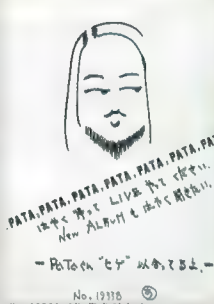 .PATA.PATA.PATA.PATA.PATA.PATA.PATA
はやく 帰って LIVE やって ください.
New ALBUM も はやく 聞きたい.
- PATAくん "ヒゲ" 似合ってるよ.-
No.19338